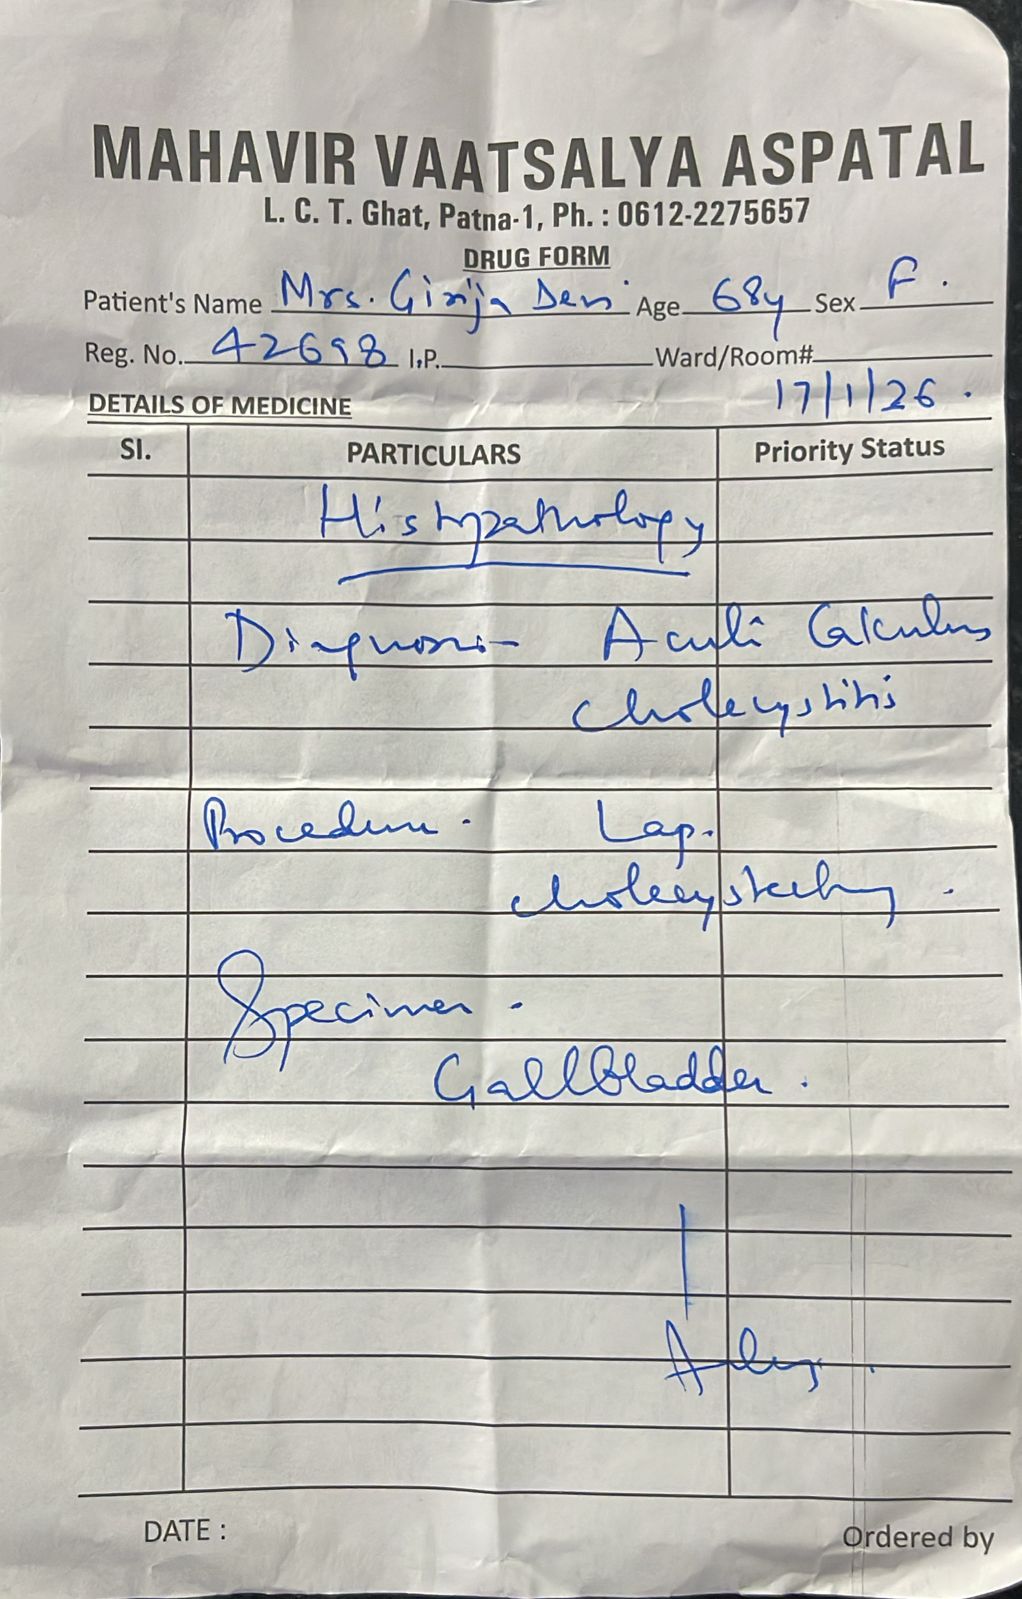 MAHAVIR VAATSALYA ASPATAL
L. C. T. Ghat, Patna-1, Ph. : 0612-2275657
DRUG FORM
Patient's Name Mrs. Girija Devi Age 68y Sex F.
Reg. No. 42698 I.P. Ward/Room#
17/1/26.
DETAILS OF MEDICINE
Sl. PARTICULARS Priority Status
Histopathology
Diagnosis- Acute Calculus
cholecystitis
Procedure. Lap.
cholecystectomy.
Specimen.
Gallbladder.
DATE :
Ordered by